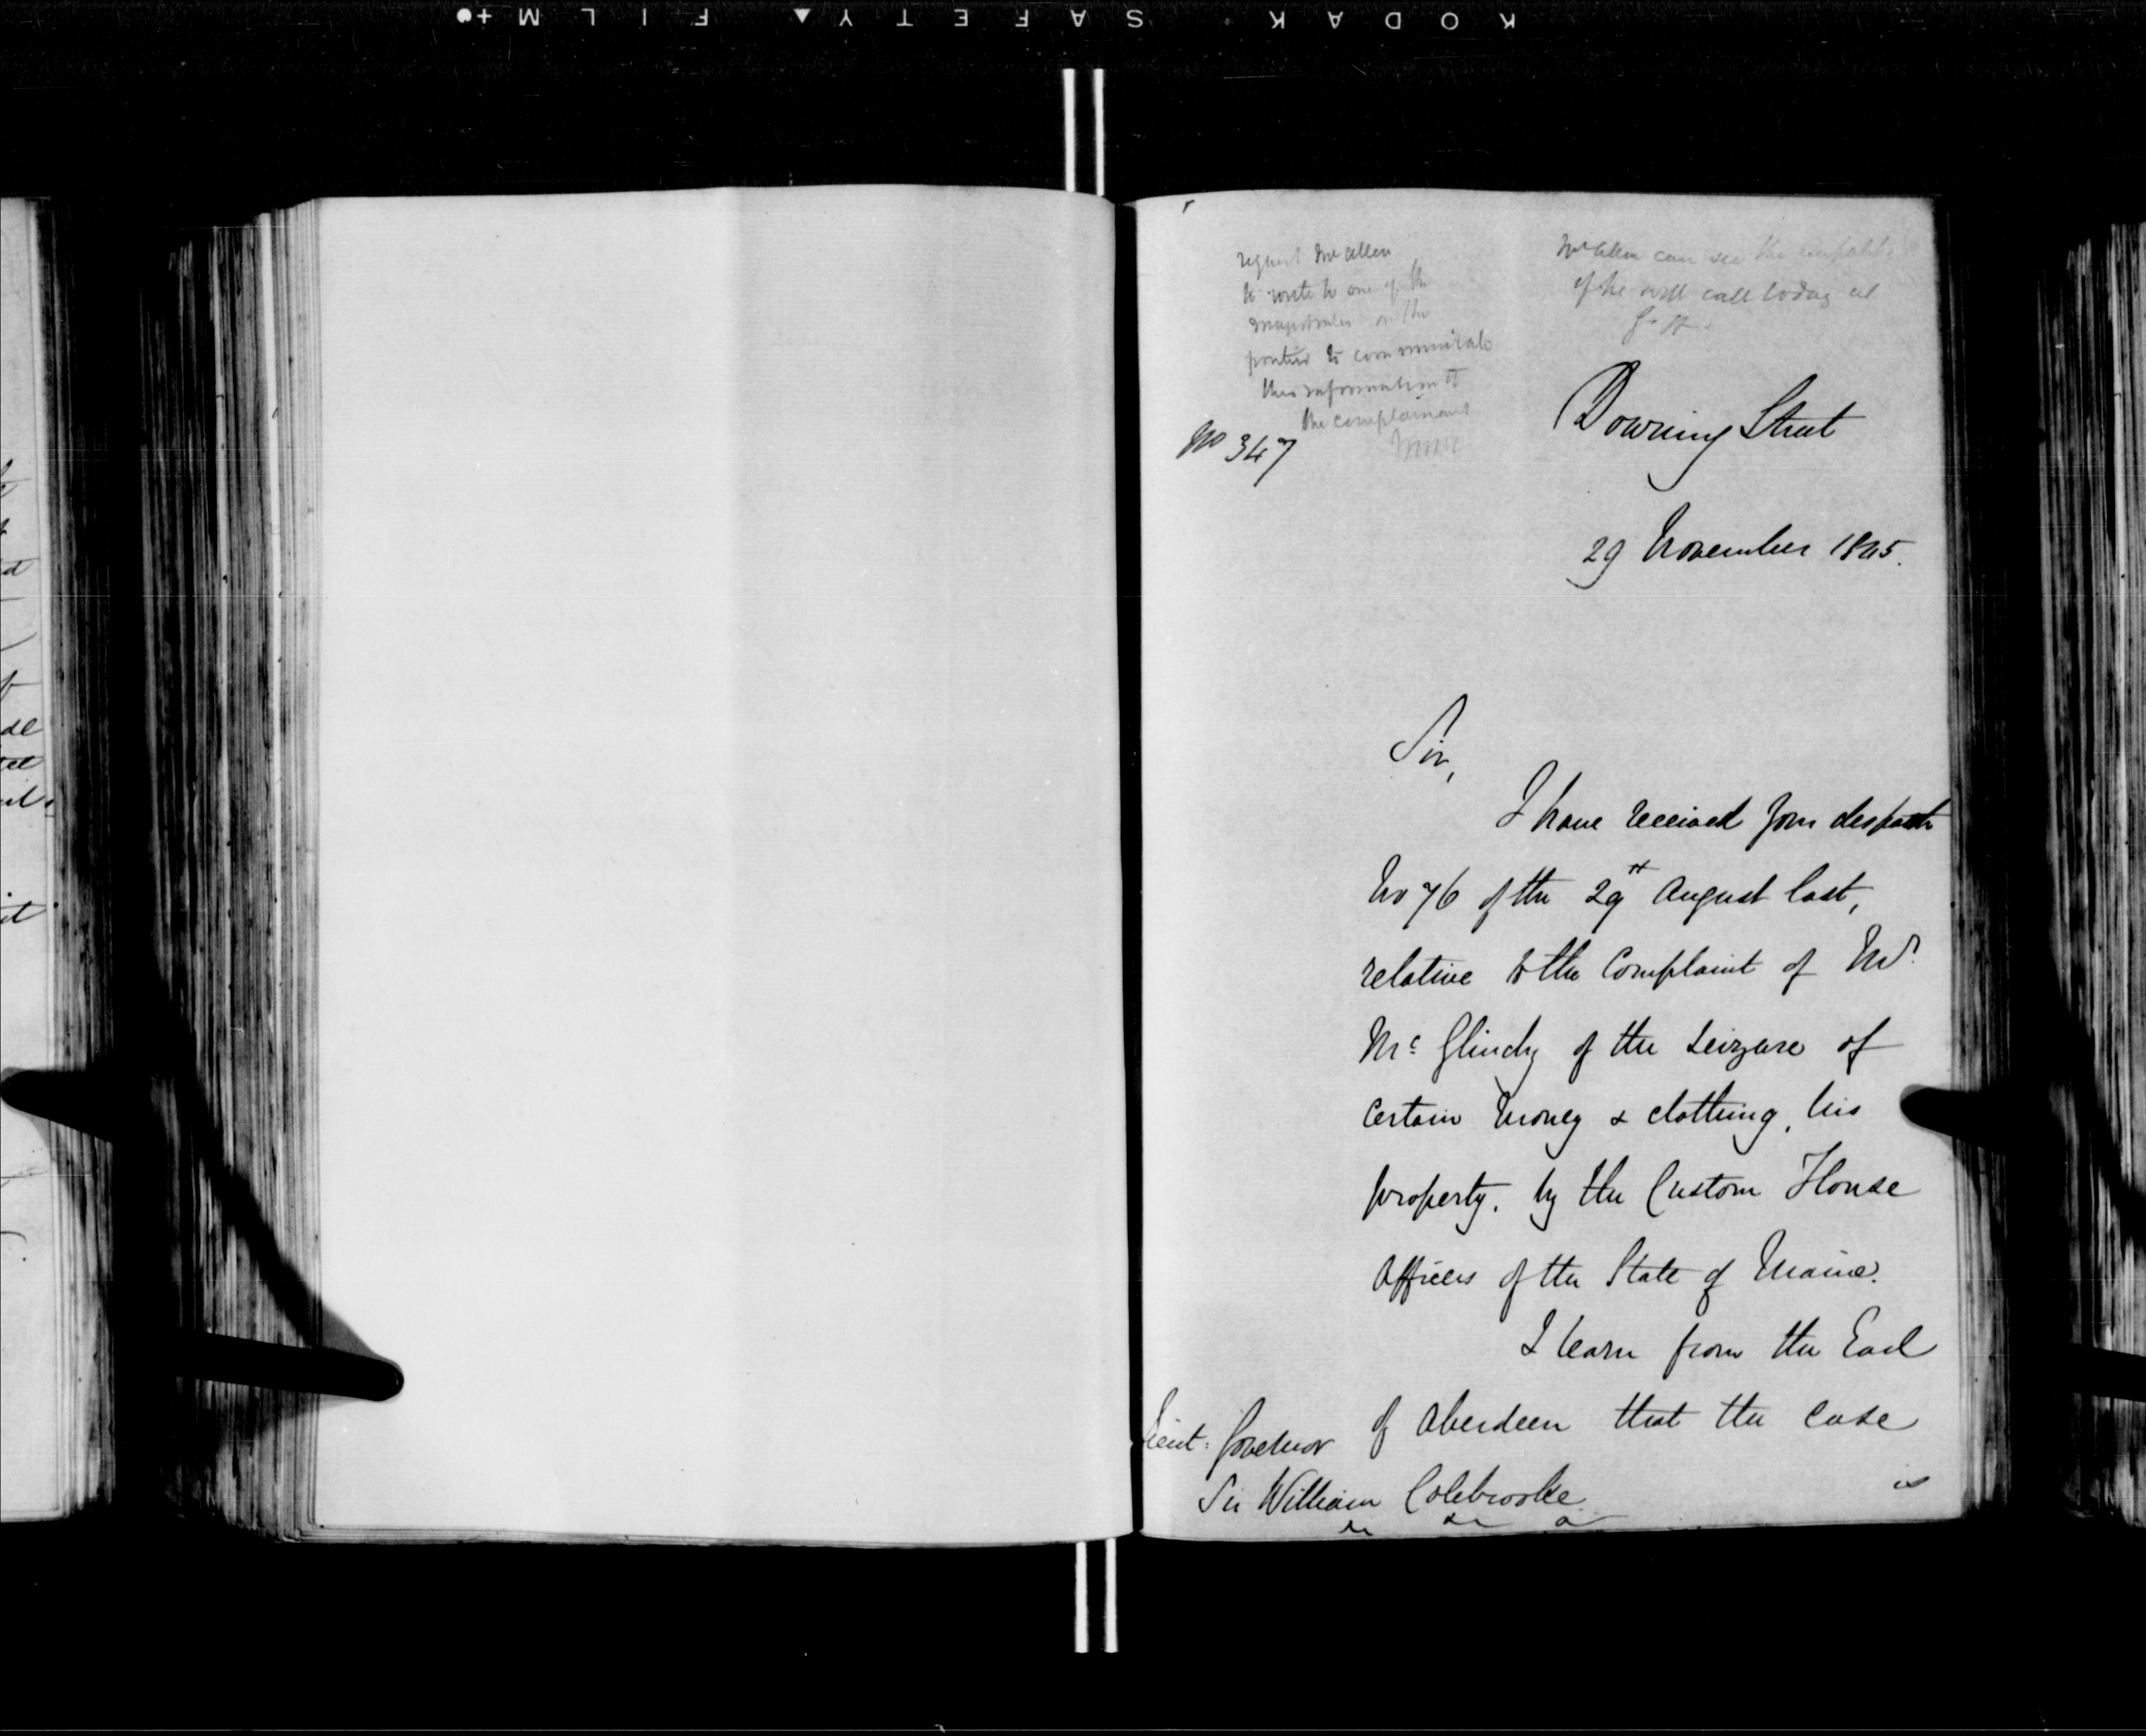 KODAK SAFETY FILM
request Mr Allen
to write to one of the
magistrates on the
frontier to communicate
this information to
the complainant
Mr Allen can see the
if he will call today at
No 347
Downing Street
29 November 1845.
Sir,
I have received your despatch
No 76 of the 29th August last,
relative to the Complaint of Mr.
Mc Glinchy of the Seizure of
Certain Money & clothing, his
property, by the Custom House
Officers of the State of Maine.
I learn from the Earl
of Aberdeen that the case
is
Lieut: Governor
Sir William Colebrooke